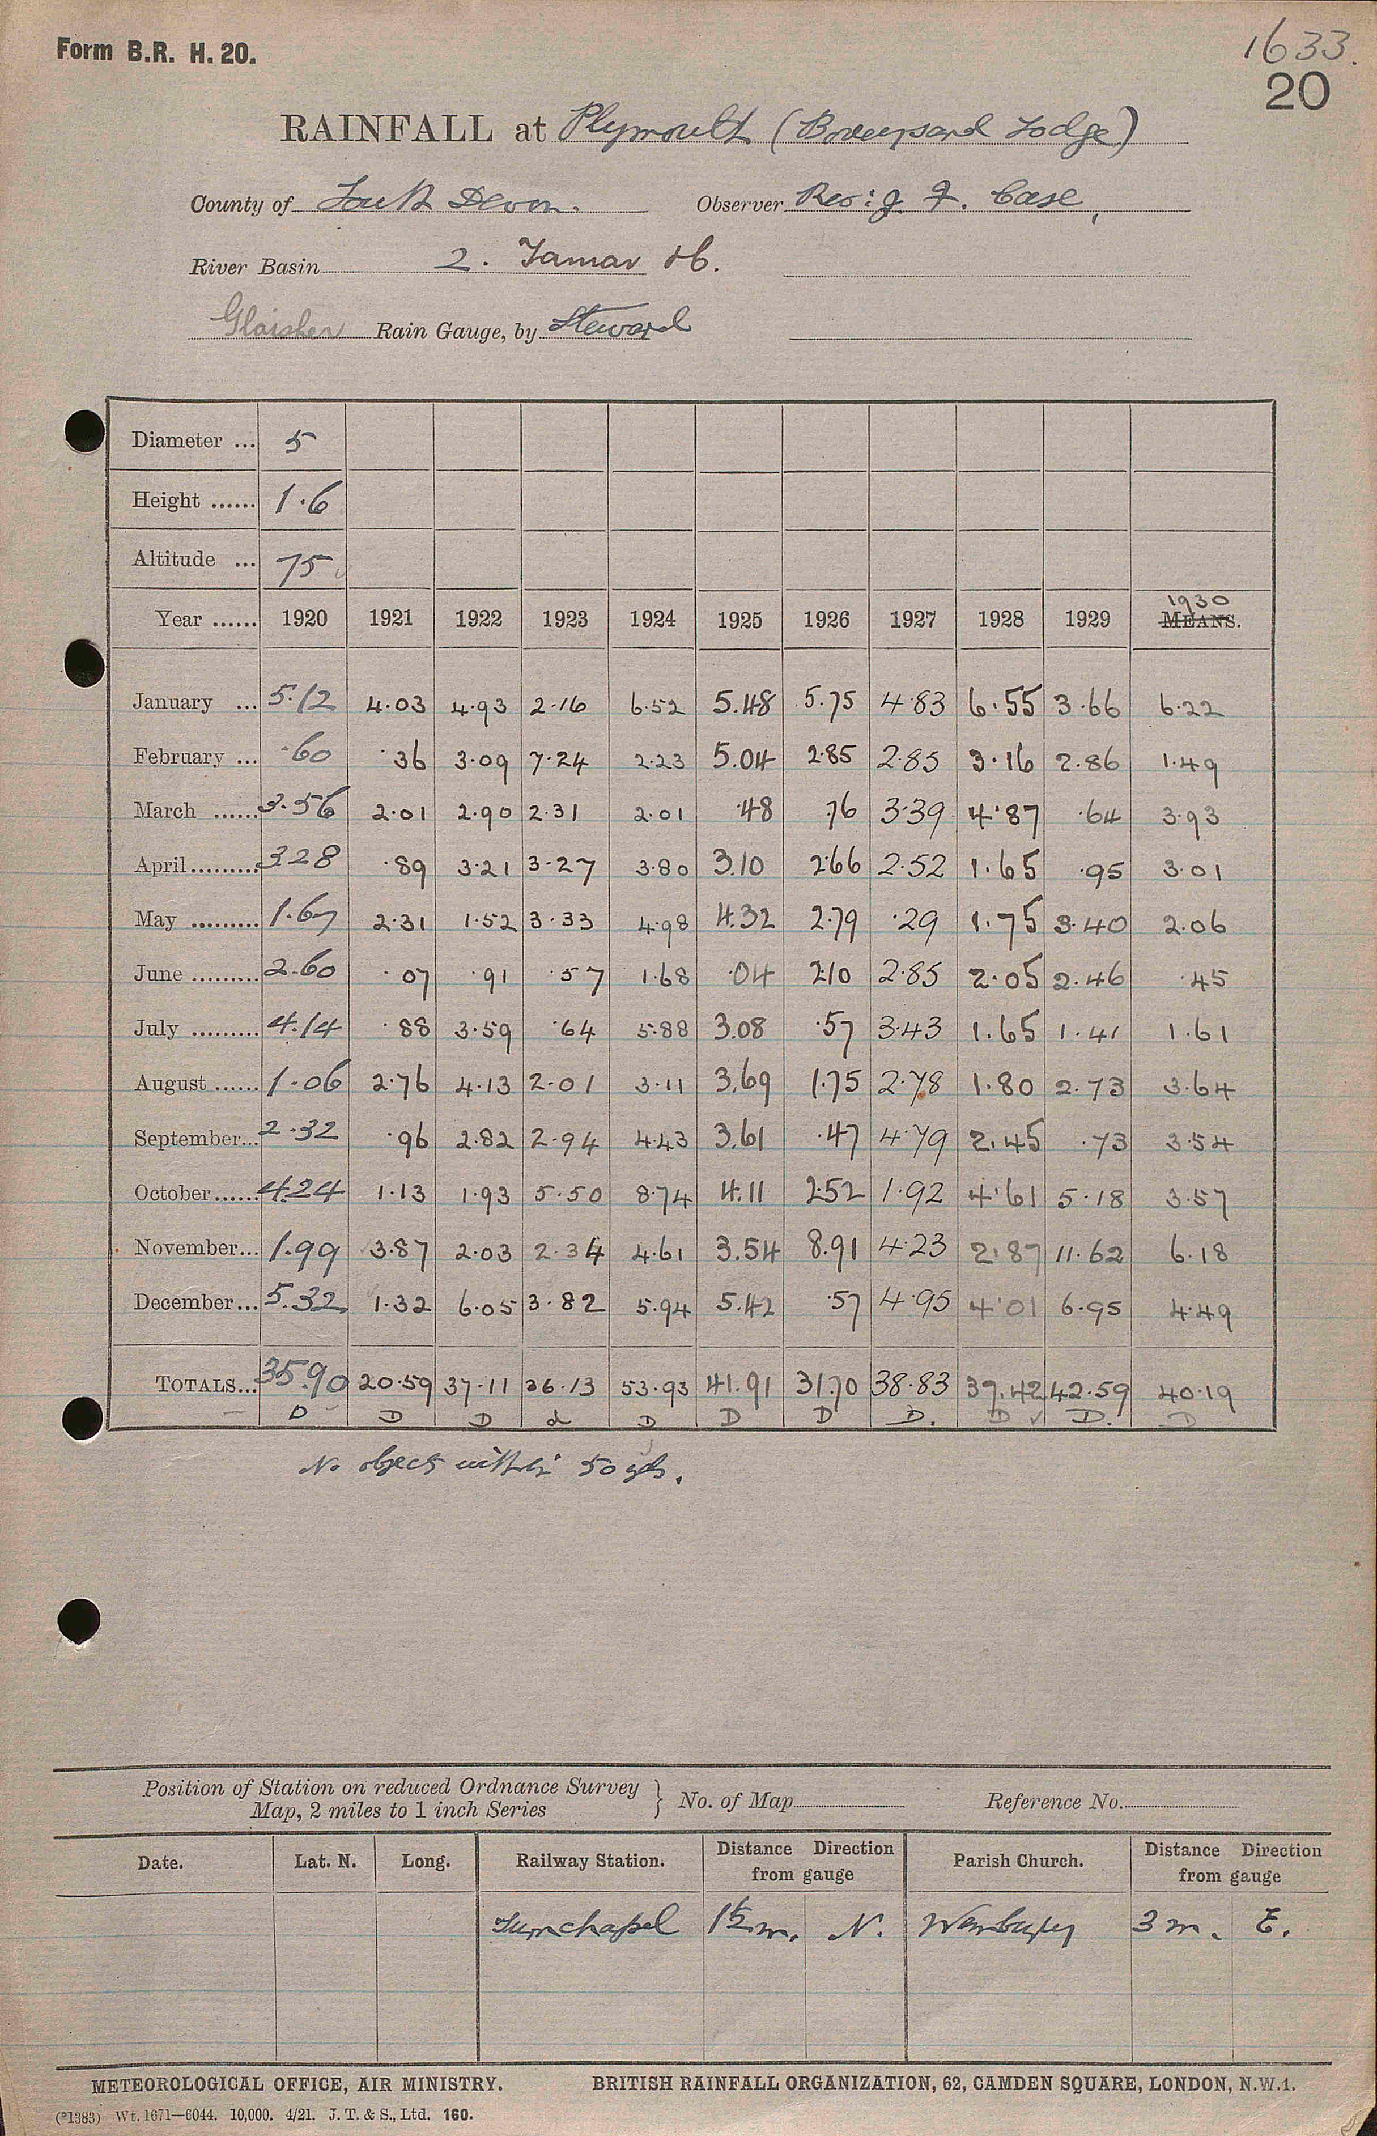 Form B.R. H. 20.
1633.
20
RAINFALL at Plymouth (Bovisand Lodge)
County of South Devon. Observer Rev: J. F. Case,
River Basin 2. Tamar &c.
Glaisher Rain Gauge, by Steward
Diameter ... 5
Height ...... 1.6
Altitude ... 75
Year ...... 1920 1921 1922 1923 1924 1925 1926 1927 1928 1929 1930 MEANS.
January ... 5.12 4.03 4.93 2.16 6.52 5.48 5.75 4.83 6.55 3.66 6.22
February ... .60 .36 3.09 7.24 2.23 5.04 2.85 2.85 3.16 2.86 1.49
March ...... 3.56 2.01 2.90 2.31 2.01 .48 .76 3.39 4.87 .64 3.93
April ......... 3.28 .89 3.21 3.27 3.80 3.10 2.66 2.52 1.65 .95 3.01
May ......... 1.67 2.31 1.52 3.33 4.98 4.32 2.79 .29 1.75 3.40 2.06
June ......... 2.60 .07 .91 .57 1.68 .04 2.10 2.85 2.05 2.46 .45
July ......... 4.14 .88 3.59 .64 5.88 3.08 .57 3.43 1.65 1.41 1.61
August ...... 1.06 2.76 4.13 2.01 3.11 3.69 1.75 2.78 1.80 2.73 3.64
September... 2.32 .96 2.82 2.94 4.43 3.61 .47 4.79 2.45 .73 3.54
October...... 4.24 1.13 1.93 5.50 8.74 4.11 2.52 1.92 4.61 5.18 3.57
November... 1.99 3.87 2.03 2.34 4.61 3.54 8.91 4.23 2.87 11.62 6.18
December... 5.32 1.32 6.05 3.82 5.94 5.42 .57 4.95 4.01 6.95 4.49
TOTALS... 35.90 20.59 37.11 36.13 53.93 41.91 31.70 38.83 37.42 42.59 40.19
D D D d D D D D. D ✓ D. D
No objects within 50 yds.
Position of Station on reduced Ordnance Survey
Map, 2 miles to 1 inch Series } No. of Map Reference No.
Date. Lat. N. Long. Railway Station. Distance Direction from gauge Parish Church. Distance Direction from gauge
Turnchapel 1½ m. N. Wembury 3 m. E.
METEOROLOGICAL OFFICE, AIR MINISTRY. BRITISH RAINFALL ORGANIZATION, 62, CAMDEN SQUARE, LONDON, N.W.1.
(*1383) Wt. 1671—6044. 10,000. 4/21. J. T. & S., Ltd. 160.